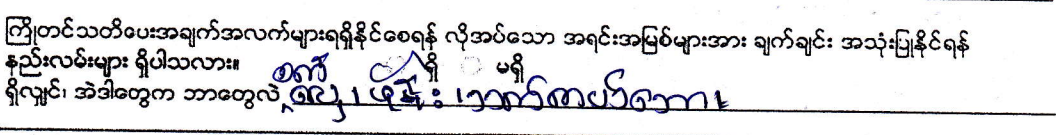 ကြိုတင်သတိပေးအချက်အလက်များရရှိနိုင်စေရန် လိုအပ်သော အရင်းအမြစ်များအား ချက်ချင်း အသုံးပြုနိုင်ရန်
နည်းလမ်းများ ရှိပါသလား။ ရှိ မရှိ
ရှိလျှင်၊ အဲဒါတွေက ဘာတွေလဲ စက်လှေ၊ ဖုန်း၊ အသက်ကယ်ဘော၊